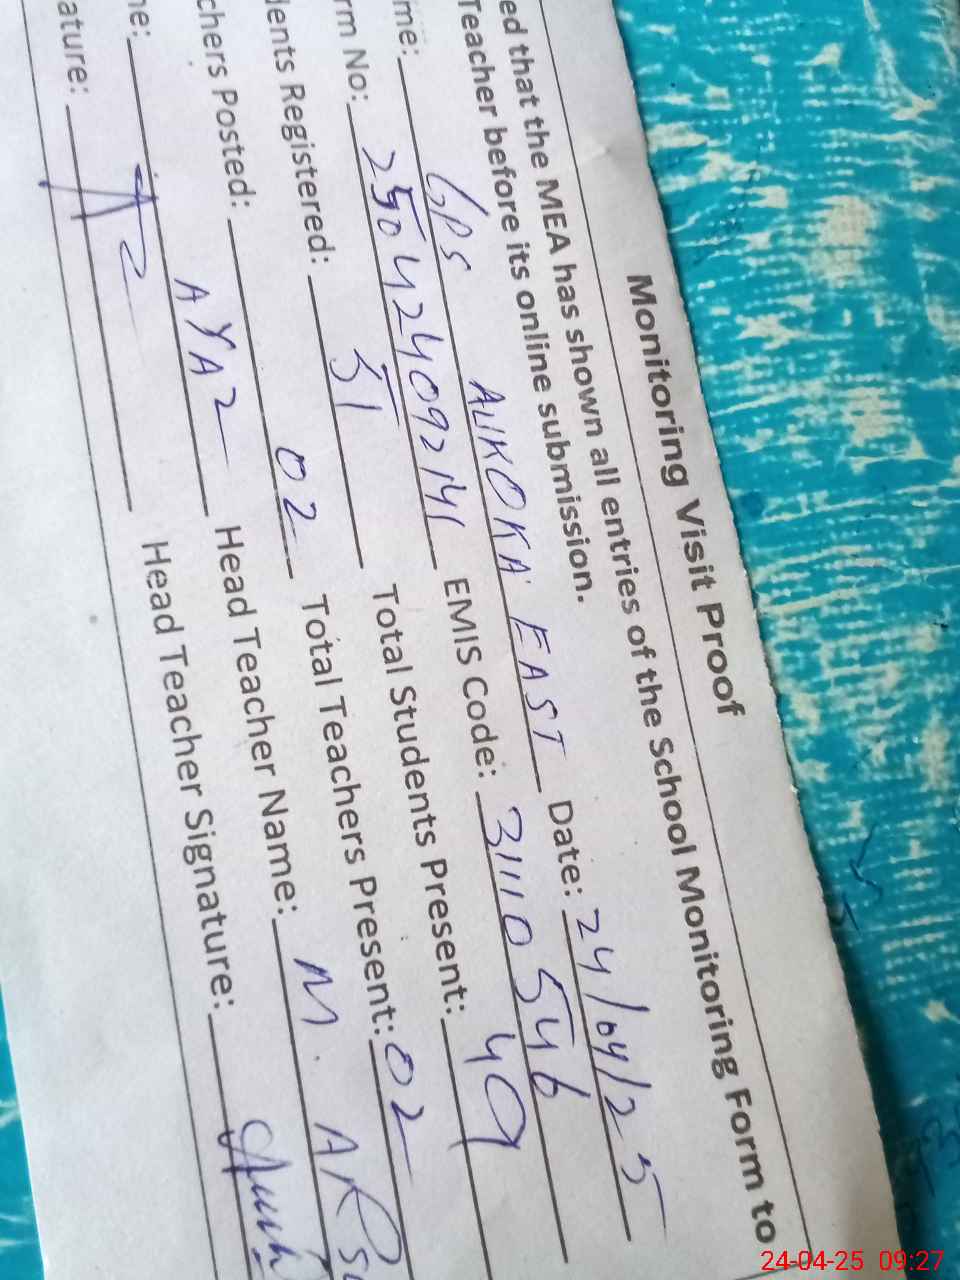 Monitoring Visit Proof
ed that the MEA has shown all entries of the School Monitoring Form to
Teacher before its online submission.
me: GPS ALIKOKA EAST Date: 24/04/25
rm No: 250424092141 EMIS Code: 31110546
dents Registered: 51 Total Students Present: 49
chers Posted: 02 Total Teachers Present: 02
ne: AYAZ Head Teacher Name: M. ARS
ature: Head Teacher Signature:
24-04-25 09:27